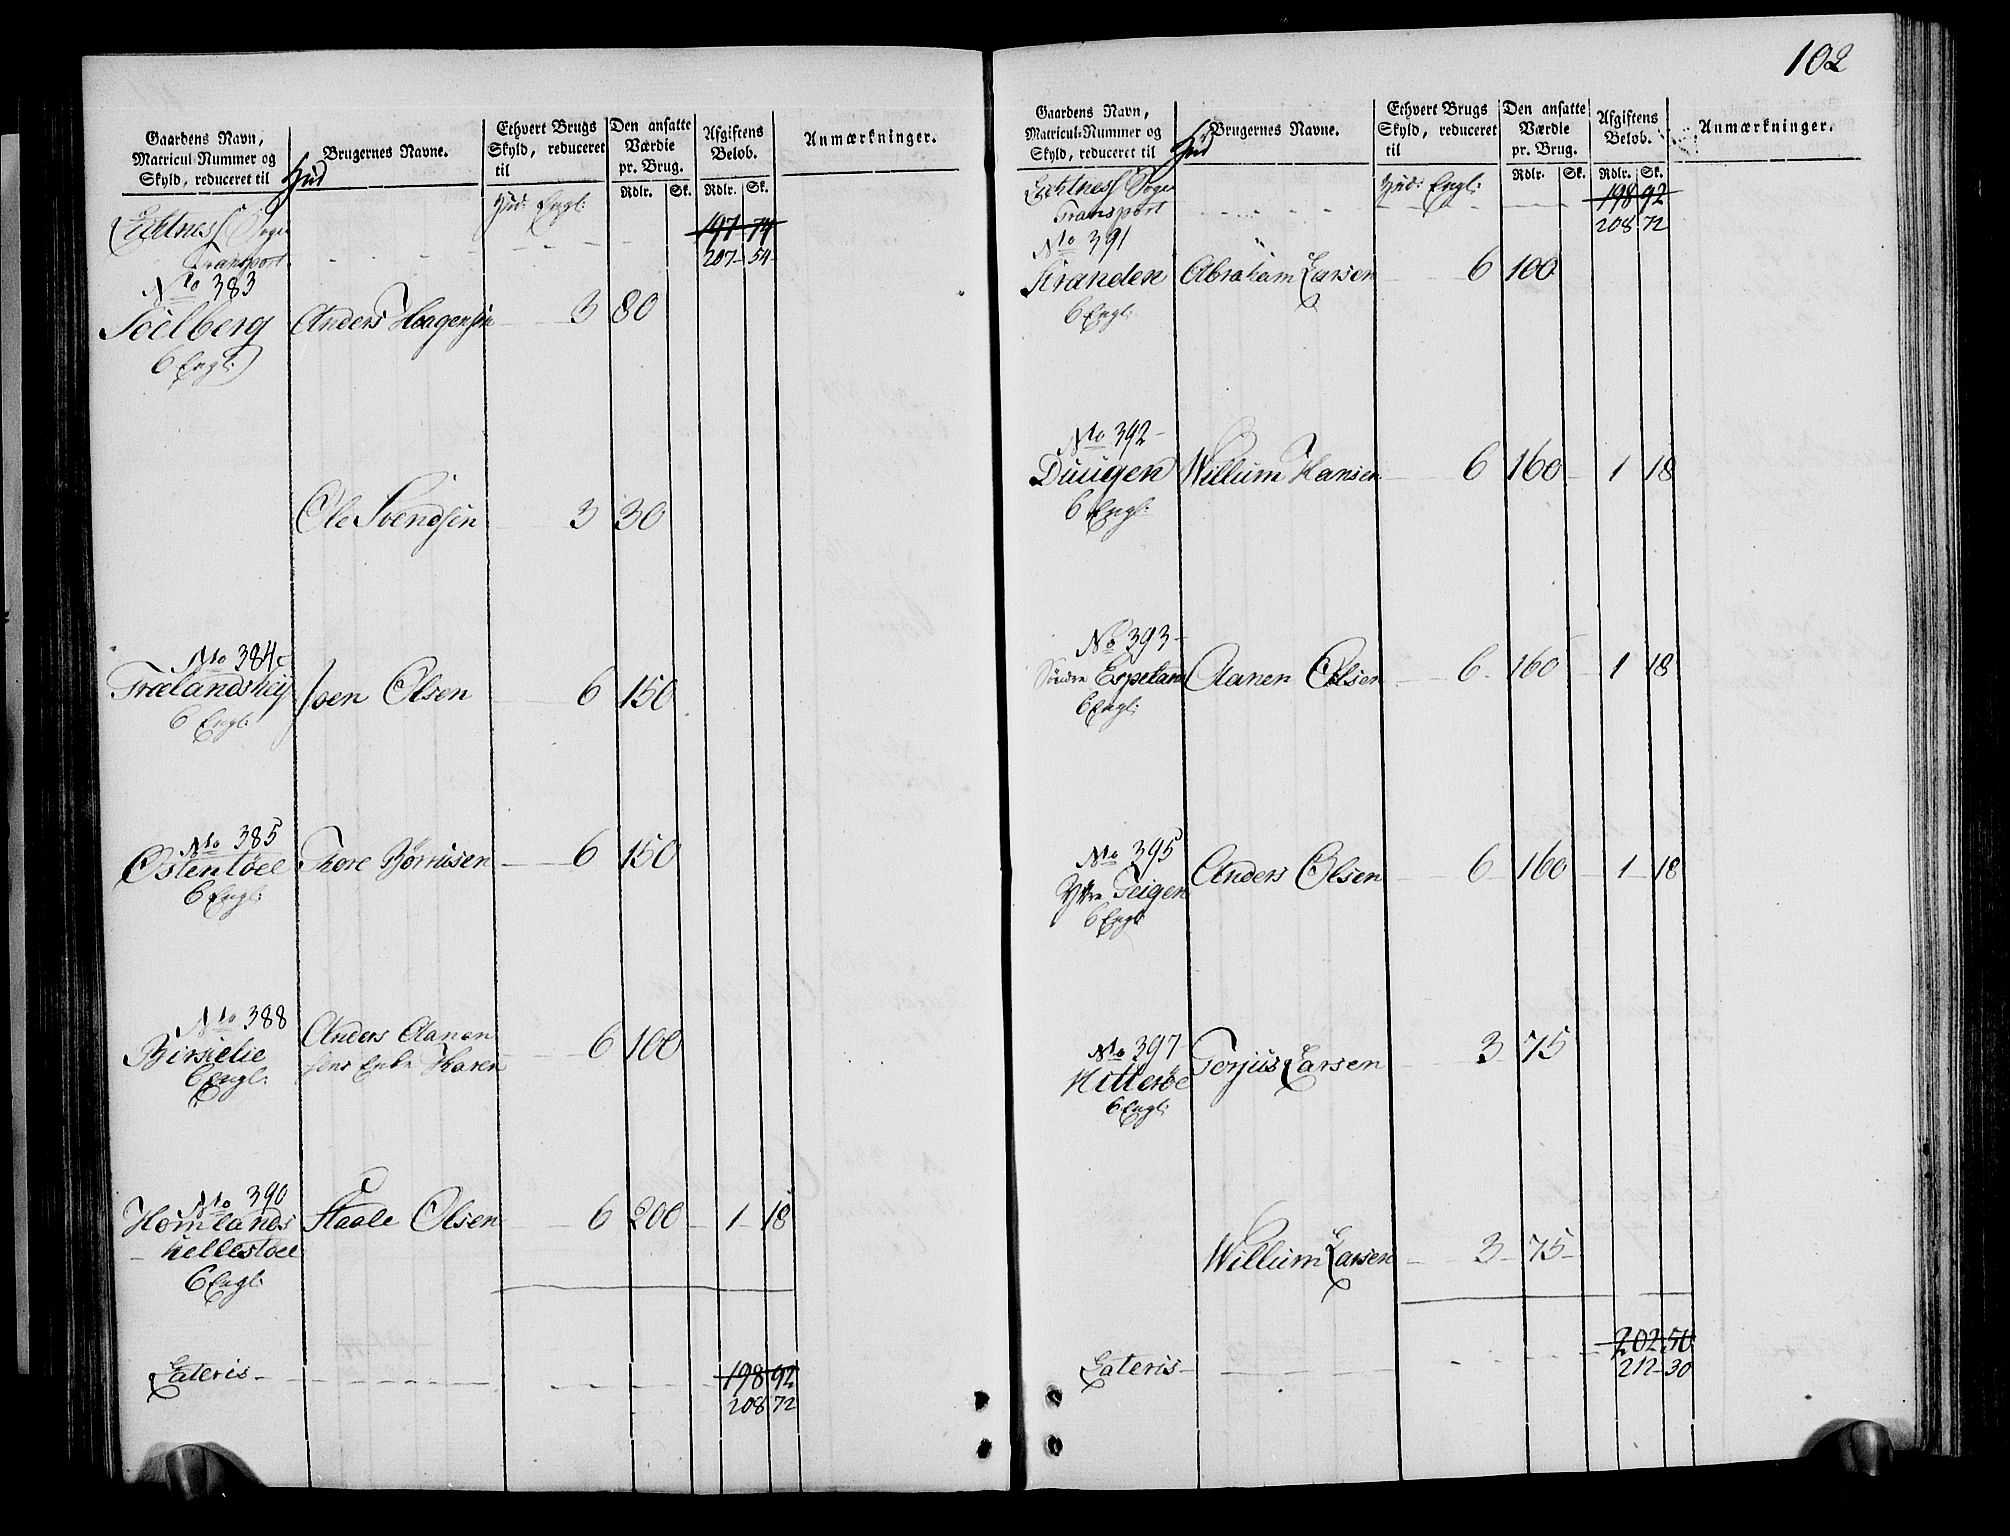 Gaardens Navn,
Matricul-Nummer og
Skyld, reduceret til Hud
Brugernes Navne.
Ethvert Brugs
Skyld, reduceret
til
Den ansatte
Værdie
pr. Brug.
Rdlr. Sk.
Afgiftens
Beløb.
Rdlr. Sk.
Anmærkninger.
Hud: Engl:
Sogn 197 74
Transport 207 54
No 383
Söelberg Anders Haagensen 3 80
6 Engl:
Ole Svendsen 3 30
No 384
Trælandshej Joen Olsen 6 150
6 Engl:
No 385
Østentøel Thore Börrüsen 6 150
6 Engl:
No 388 Anders Aanen
Birkelie sens Enke Karen 6 100
6 Engl:
No 390
Homlands Staale Olsen 6 200 1 18
hellestøel
6 Engl:
Lateris 198 92
208 72
102
Gaardens Navn,
Matricul-Nummer og
Skyld, reduceret til Hud
Brugernes Navne.
Ethvert Brugs
Skyld, reduceret
til
Den ansatte
Værdie
pr. Brug.
Rdlr. Sk.
Afgiftens
Beløb.
Rdlr. Sk.
Anmærkninger.
Hud: Engl:
Sogn 198 92
Transport 208 72
No 391
Stranden Abraham Larsen 6 100
6 Engl:
No 392
Duugen Willum Hansen 6 160 1 18
6 Engl:
No 393
Söndre Espeland Aanen Olsen 6 160 1 18
6 Engl:
No 395
Yttre Teigen Anders Olsen 6 160 1 18
6 Engl:
No 397
Hitterøe Torjüs Larsen 3 75
6 Engl:
Willum Larsen 3 75
202 50
Lateris 212 30